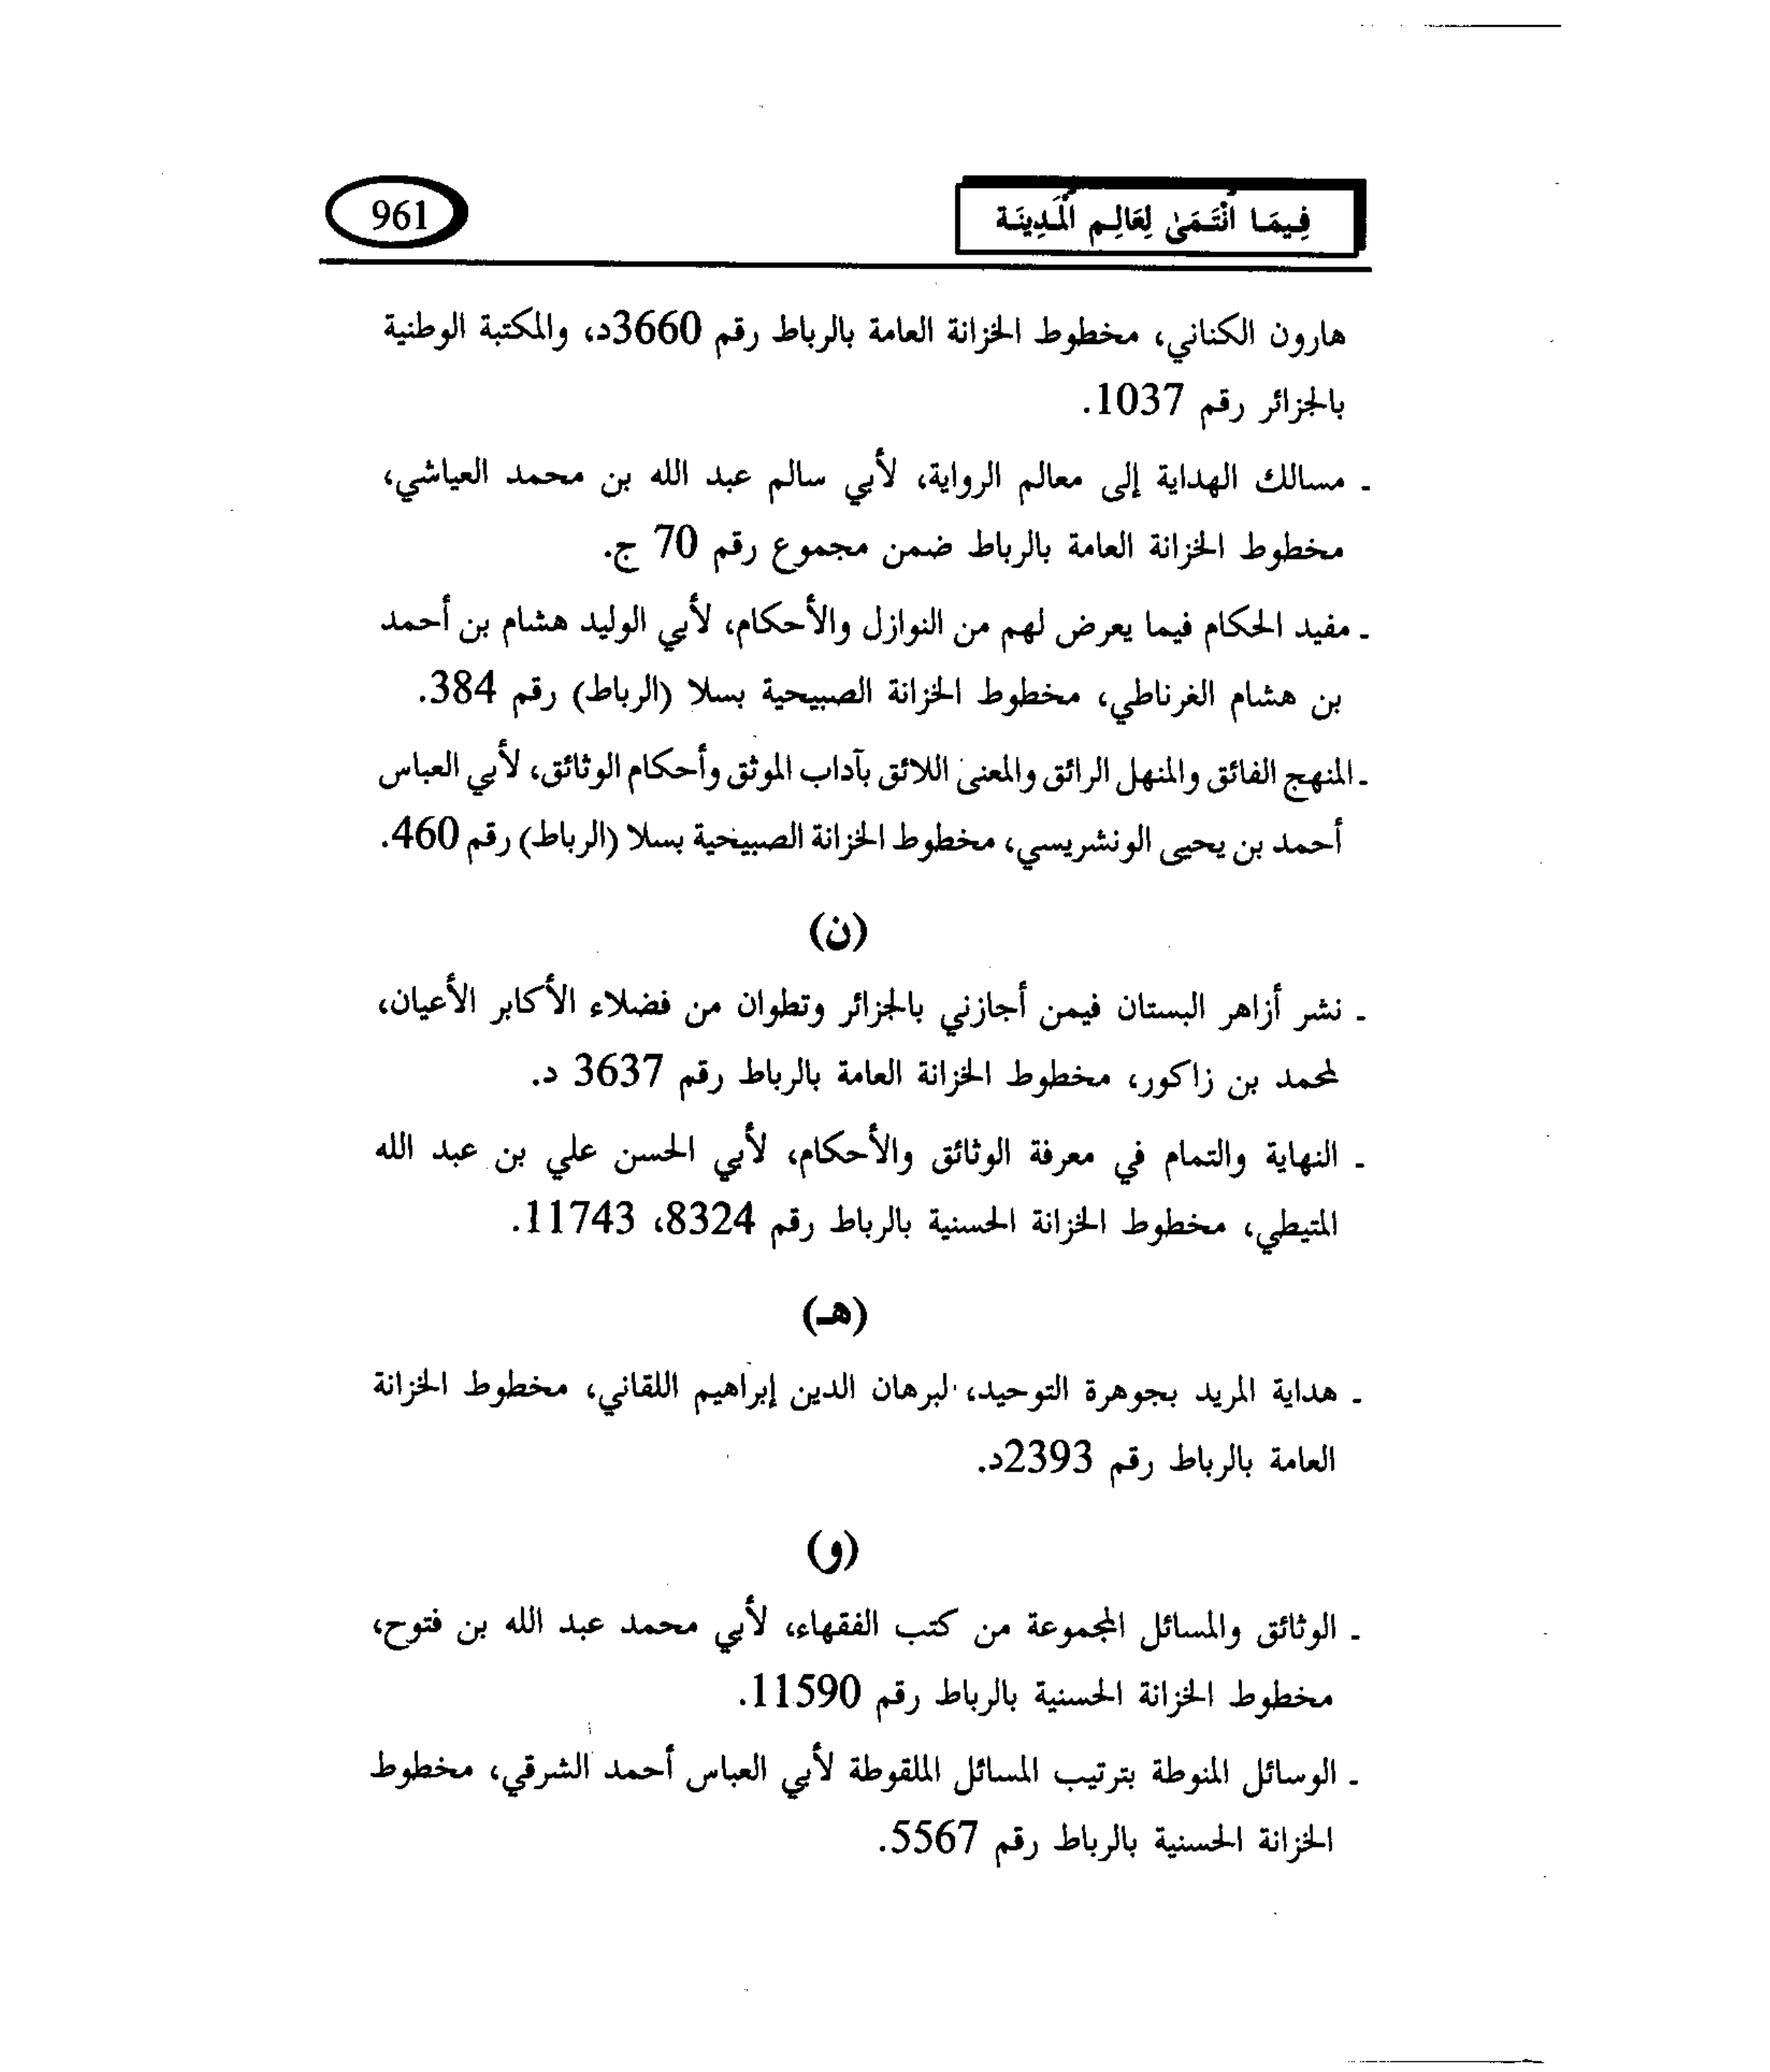 فِيمَا ٱنْتَمَىٰ لِعَالِمِ ٱلْمَدِينَة
961
هارون الكناني، مخطوط الخزانة العامة بالرباط رقم 3660د، والمكتبة الوطنية
بالجزائر رقم 1037.
ـ مسالك الهداية إلى معالم الرواية، لأبي سالم عبد الله بن محمد العياشي،
مخطوط الخزانة العامة بالرباط ضمن مجموع رقم 70 ج.
ـ مفيد الحكام فيما يعرض لهم من النوازل والأحكام، لأبي الوليد هشام بن أحمد
بن هشام الغرناطي، مخطوط الخزانة الصبيحية بسلا (الرباط) رقم 384.
ـ المنهج الفائق والمنهل الرائق والمعنى اللائق بآداب الموثق وأحكام الوثائق، لأبي العباس
أحمد بن يحيى الونشريسي، مخطوط الخزانة الصبيحية بسلا (الرباط) رقم 460.
(ن)
ـ نشر أزاهر البستان فيمن أجازني بالجزائر وتطوان من فضلاء الأكابر الأعيان،
لمحمد بن زاكور، مخطوط الخزانة العامة بالرباط رقم 3637 د.
ـ النهاية والتمام في معرفة الوثائق والأحكام، لأبي الحسن علي بن عبد الله
المتيطي، مخطوط الخزانة الحسنية بالرباط رقم 8324، 11743.
(هـ)
ـ هداية المريد بجوهرة التوحيد، لبرهان الدين إبراهيم اللقاني، مخطوط الخزانة
العامة بالرباط رقم 2393د.
(و)
ـ الوثائق والمسائل المجموعة من كتب الفقهاء، لأبي محمد عبد الله بن فتوح،
مخطوط الخزانة الحسنية بالرباط رقم 11590.
ـ الوسائل المنوطة بترتيب المسائل الملقوطة لأبي العباس أحمد الشرقي، مخطوط
الخزانة الحسنية بالرباط رقم 5567.